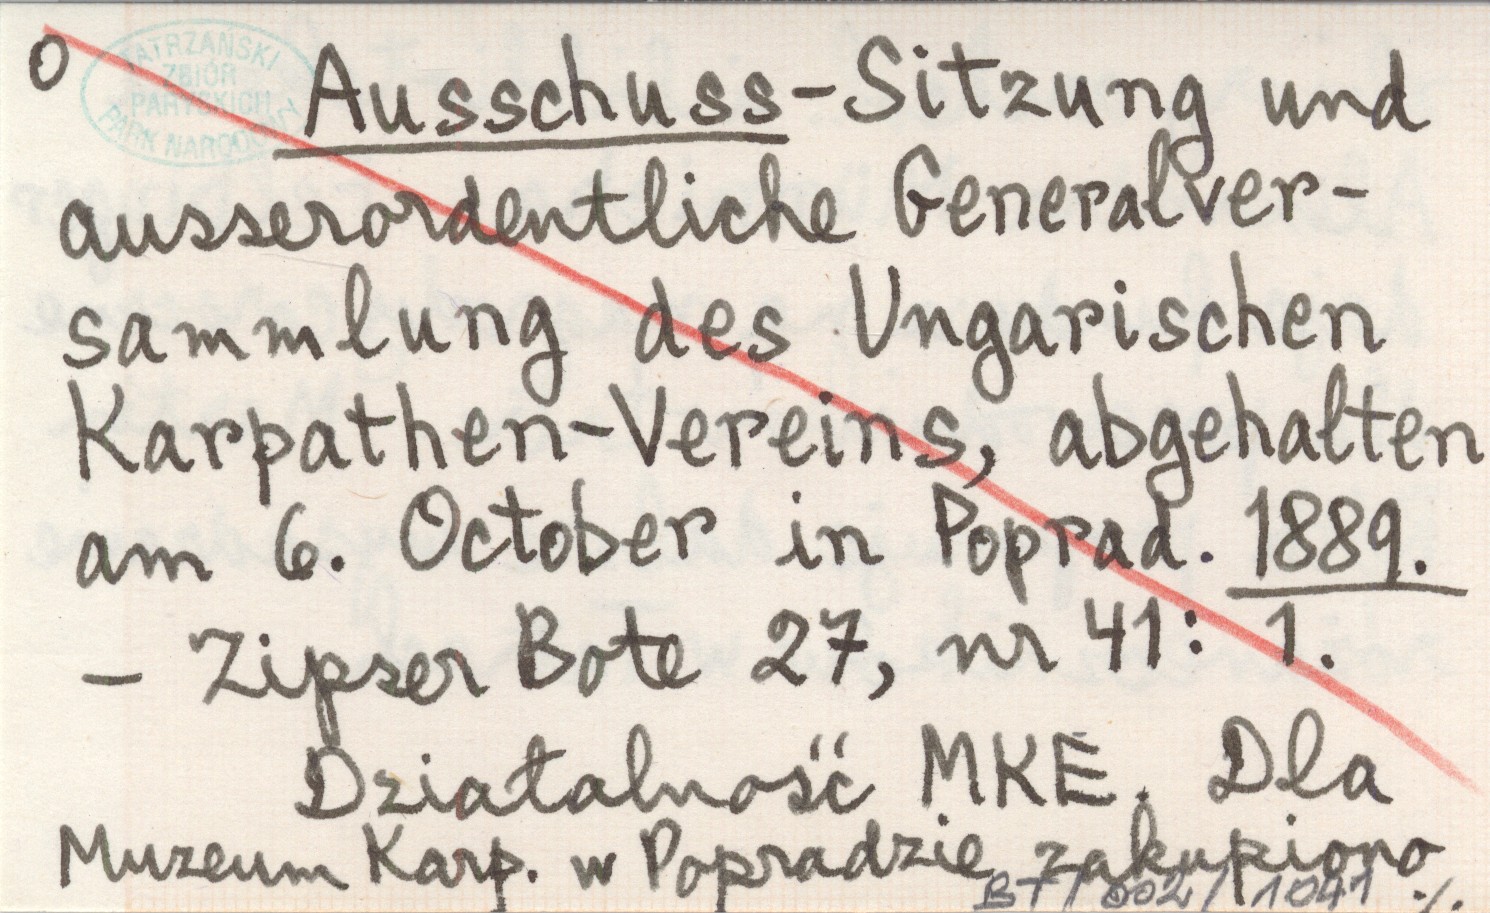 O
TATRZAŃSKI
ZBIÓR
PARYSKICH
PARK NARODOWY
Ausschuss-Sitzung und
ausserordentliche Generalver-
sammlung des Ungarischen
Karpathen-Vereins, abgehalten
am 6. October in Poprad. 1889.
— Zipser Bote 27, nr 41: 1.
Działalność MKE. Dla
Muzeum Karp. w Popradzie zakupiono
BT/802/1041 ./.